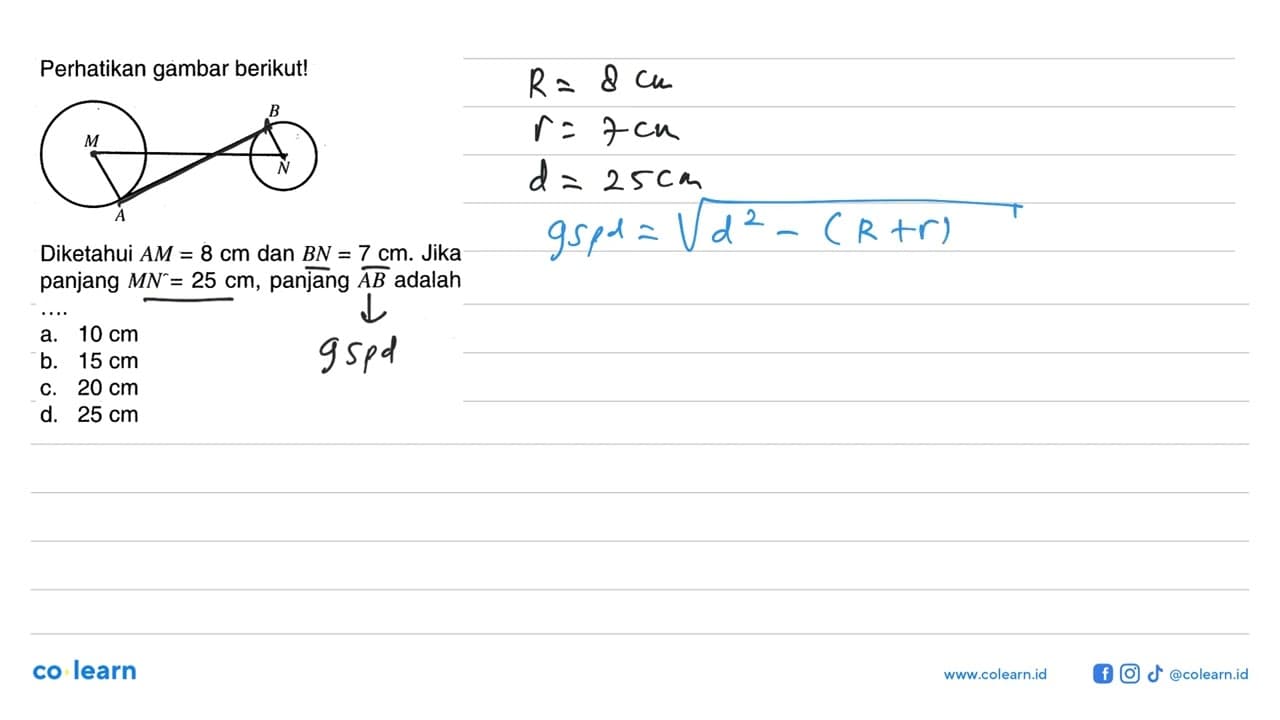 Perhatikan gambar berikut!
M
B
N
A
Diketahui AM = 8 cm dan BN = 7 cm. Jika
panjang MN = 25 cm, panjang AB adalah
....
a. 10 cm
b. 15 cm
c. 20 cm
d. 25 cm
↓
gspd
R = 8 cm
r = 7 cm
d = 25 cm
gspd = √d² - (R+r)
co learn
www.colearn.id
@colearn.id